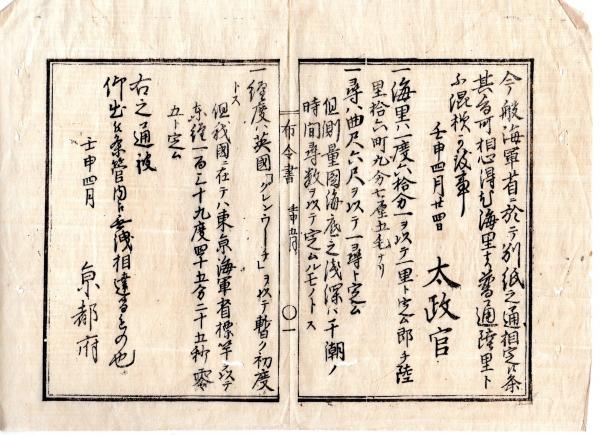 今般海軍省ニ於テ別紙之通相定候条
其旨可相心得尤海里ト普通陸里ト
不混様可致事
壬申四月廿四日
太政官
一海里ハ一度六拾分一ヲ以テ一里ト定ム即チ陸
里拾六町九分七厘五毛ナリ
一尋ハ曲尺六尺ヲ以テ一尋ト定ム
但測量図海底之浅深ハ干潮ノ
時間尋数ヲ以テ定ムルモノトス
布令書 壬申五月 〇一
一経度ハ英國「グレンウーチ」ヲ以テ暫ク初度
トス
但我國ニ在テハ東京海軍省標竿ヲ以テ
東経一百三十九度四十五分二十五秒零
五ト定ム
右之通被
仰出候条管内無洩相達るもの也
壬申四月
京都府